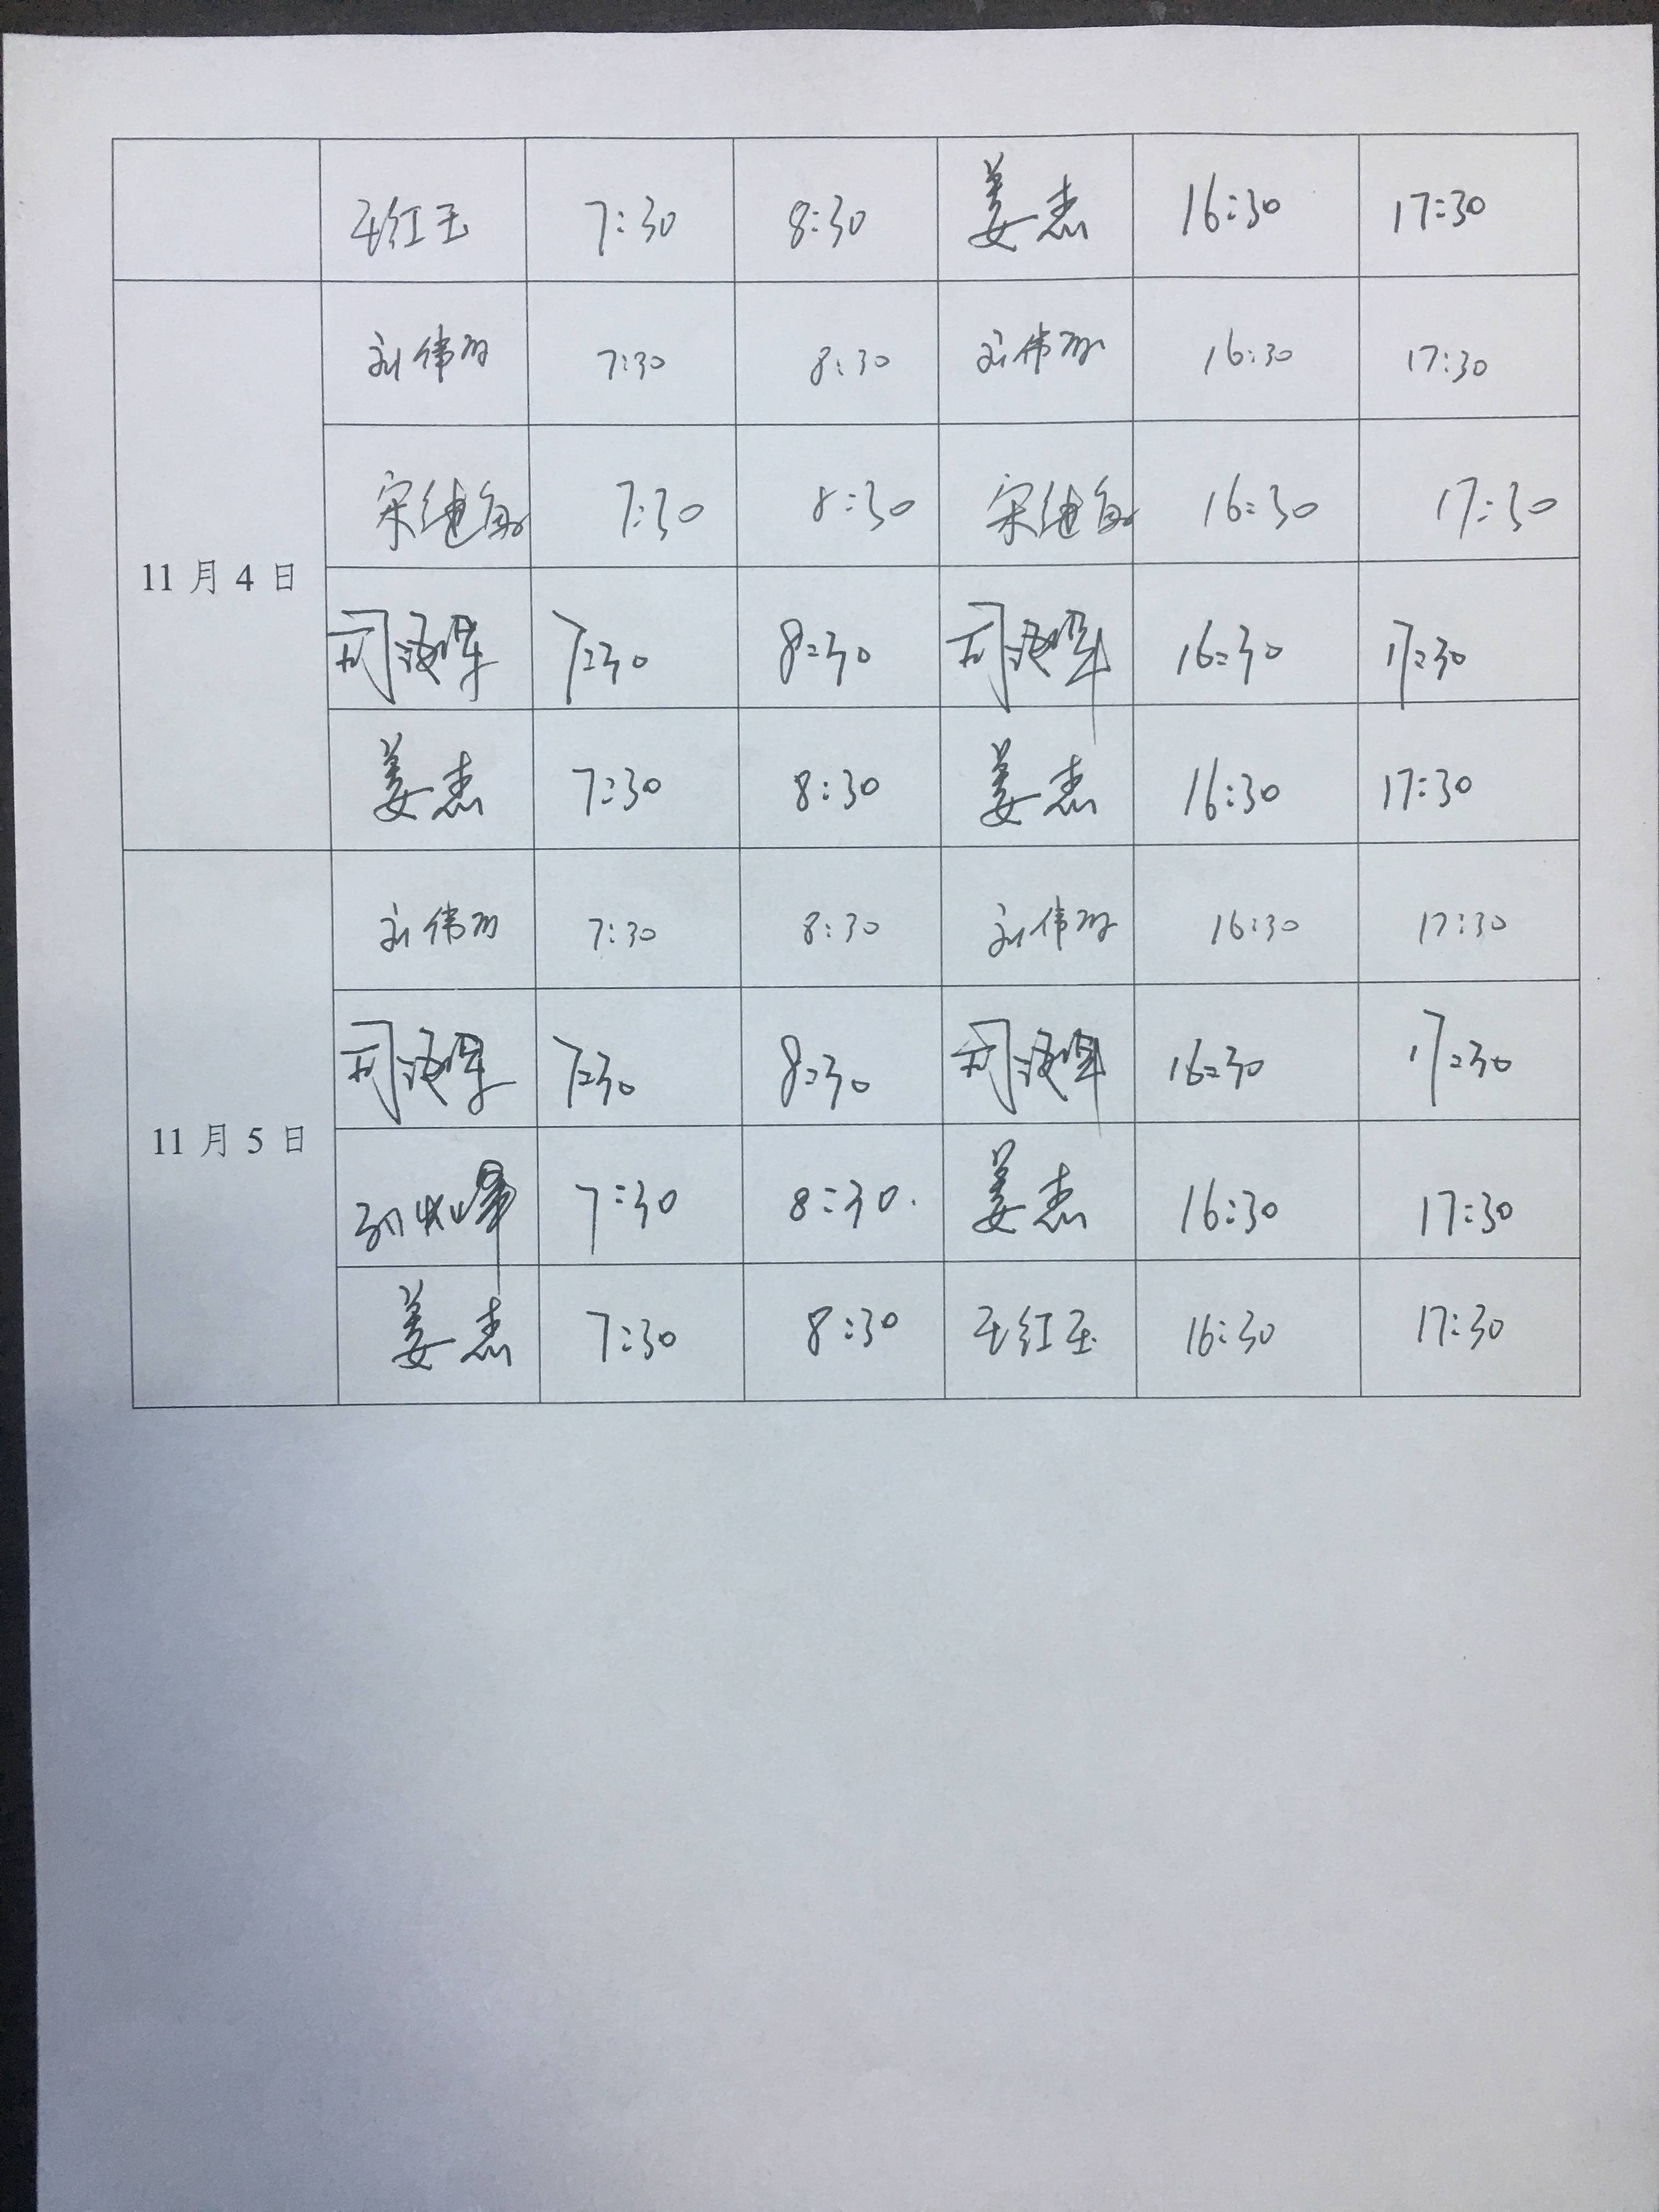 王红玉 7:30 8:30 姜杰 16:30 17:30
刘伟 7:30 8:30 刘伟 16:30 17:30
宋继 7:30 8:30 宋继 16:30 17:30
11月4日
司 7:30 8:30 司 16:30 17:30
姜杰 7:30 8:30 姜杰 16:30 17:30
刘伟 7:30 8:30 刘伟 16:30 17:30
司 7:30 8:30 司 16:30 17:30
11月5日
7:30 8:30. 姜杰 16:30 17:30
姜杰 7:30 8:30 王红玉 16:30 17:30